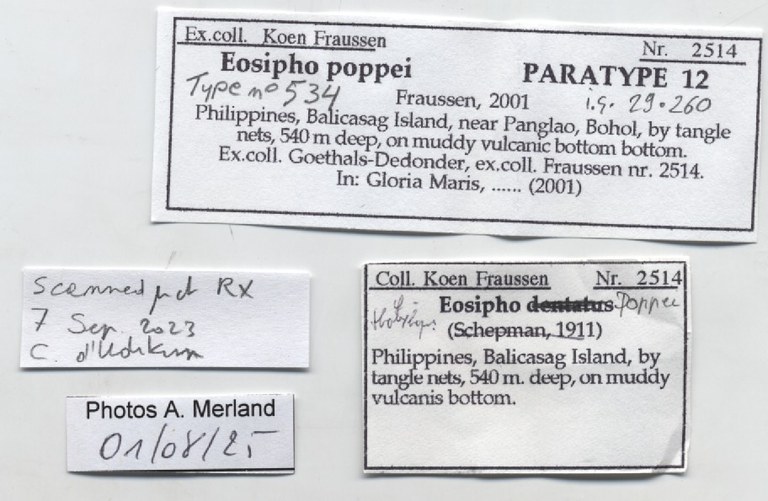 Ex.coll. Koen Fraussen
Nr. 2514
Eosipho poppei
PARATYPE 12
Type n° 534
Fraussen, 2001
i.g. 29.260
Philippines, Balicasag Island, near Panglao, Bohol, by tangle
nets, 540 m deep, on muddy vulcanic bottom bottom.
Ex.coll. Goethals-Dedonder, ex.coll. Fraussen nr. 2514.
In: Gloria Maris, ...... (2001)
Scanned µct RX
7 Sep. 2023
C.
Photos A. Merland
01/08/25
Coll. Koen Fraussen
Nr. 2514
Eosipho dentatus Poppei
(Schepman, 1911)
Philippines, Balicasag Island, by
tangle nets, 540 m. deep, on muddy
vulcanis bottom.